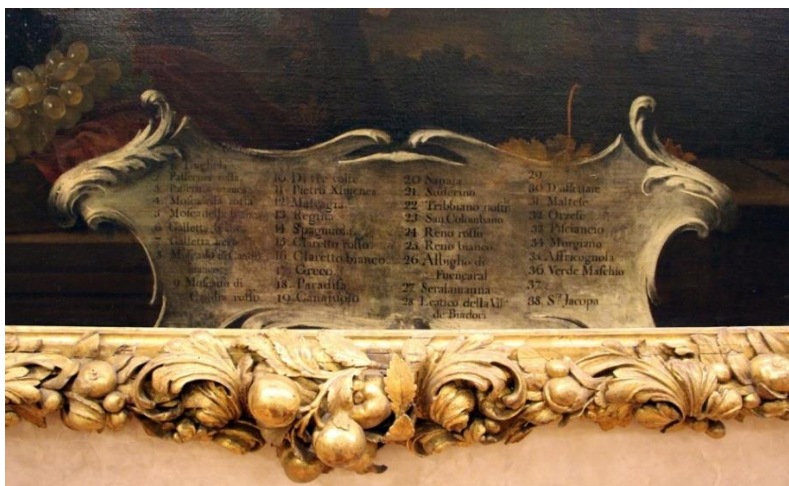 2. Passerina rossa.
3. Passerina bianca.
4. Moscadella rossa
5. Moscadella bianca
6. Galletta
7. Galletta nera
8. Moscado di
9 Moscado di
rosso
10. Di tre volte
11. Pietro Ximenes
12. Malvagia
13. Regino
14 Spagniola
15. Claretto rosso
16 Claretto bianco
17. Greco
18. Paradisa
19. Canajuolo
20 Sapaia
21. Soderino
22. Tribbiano nostr.
23. San Colombano
24 Reno rosso
25 Reno bianco
26 Albiglio di
Fuencaral
27 Seralamanna
28 Leatico della Vil.
de Biadori
29
30 D'
31. Maltese
32. Orzese
33. Pisciancio
34 Morgiano
35. Affricognola
36 Verde Maschio
37.
38. S.ᵃ Jacopa